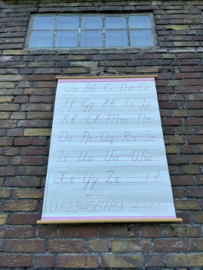 Aa Bb Cc Dd Ee
Ff Gg Hh Ii Jj
Kk Ll Mm Nn
Oo Pp Qq Rr Ss
Tt Uu Vv Ww
Xx Yy Zz
0123456789